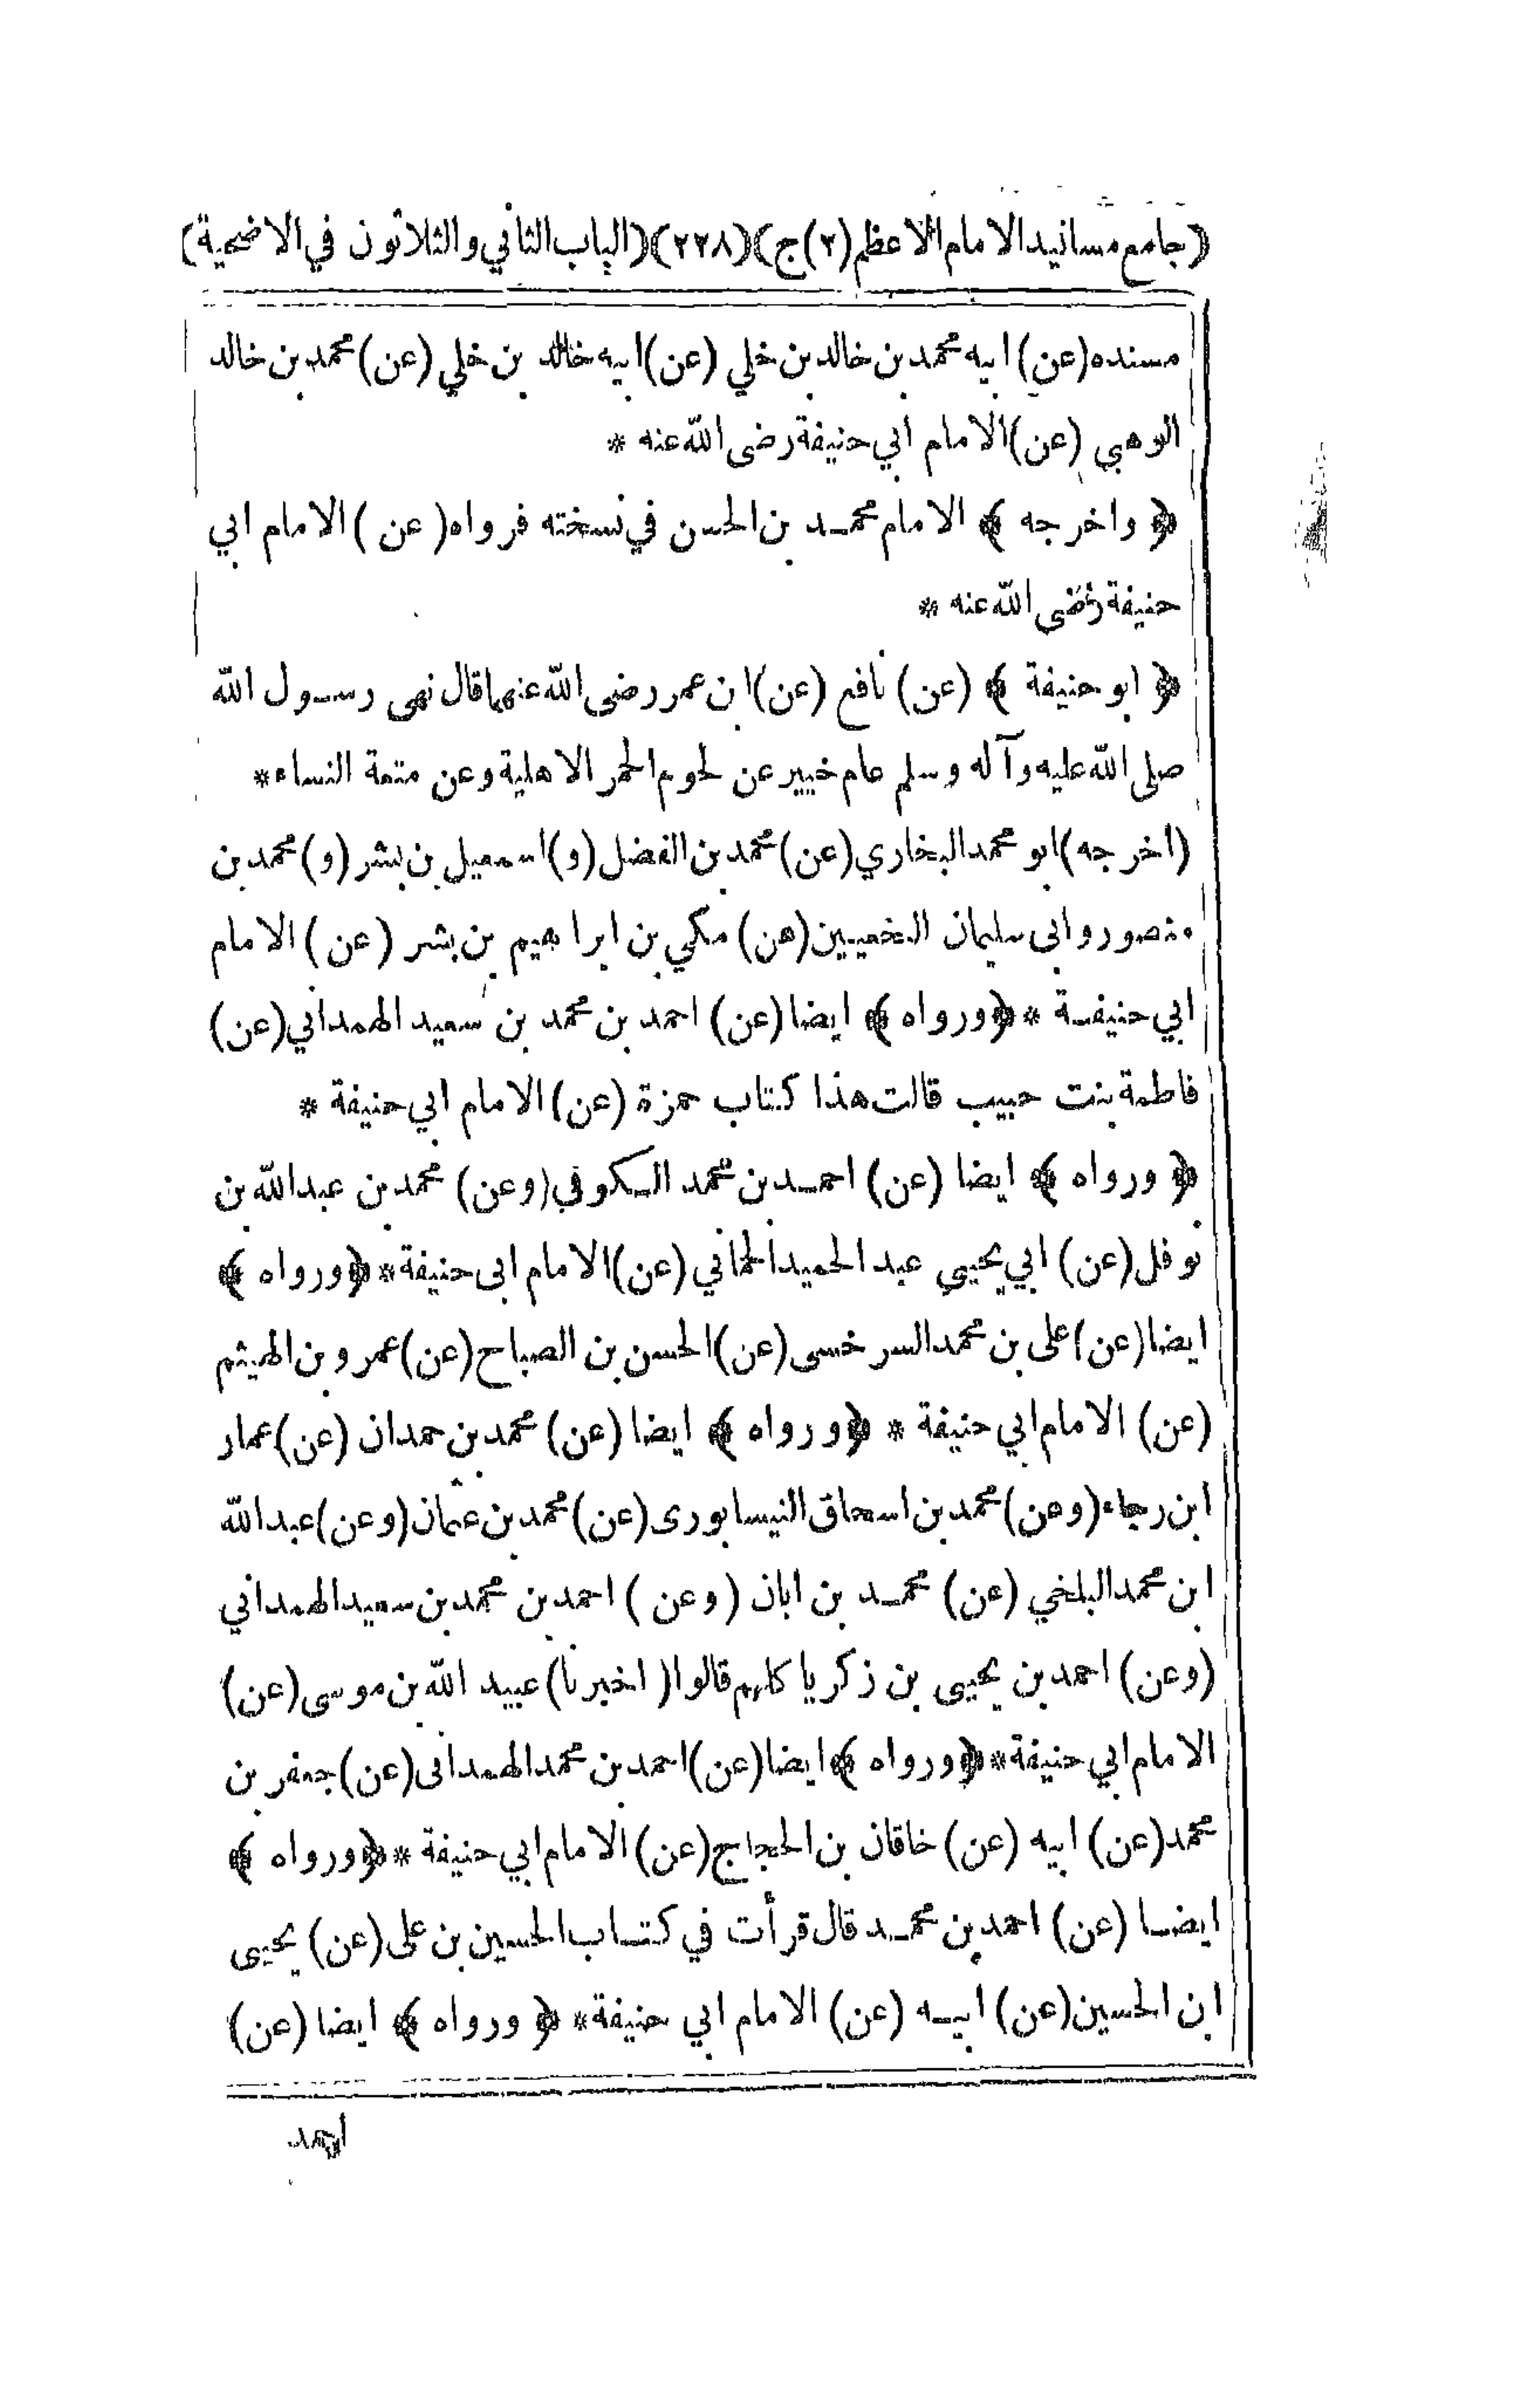 (جامع مسانيد الامام الاعظم (٢) ج) (٢٢٨) (الباب الثاني والثلاثون في الاضحية)
مسنده (عن) ابيه محمد بن خالد بن خلي (عن) ابيه خالد بن خلي (عن) محمد بن خالد
الوهبي (عن) الامام ابي حنيفة رضى الله عنه *
﴿ واخرجه ﴾ الامام محمد بن الحسن في نسخته فرواه (عن) الامام ابي
حنيفة رضى الله عنه *
﴿ ابو حنيفة ﴾ (عن) نافع (عن) ابن عمر رضى الله عنهما قال نهى رسول الله
صلى الله عليه وآله وسلم عام خيبر عن لحوم الحمر الاهلية وعن متعة النساء *
(اخرجه) ابو محمد البخاري (عن) محمد بن الفضل (و) اسمعيل بن بشر (و) محمد بن
منصور وابى سليمان (عن) مكي بن ابراهيم بن بشر (عن) الامام
ابي حنيفة * ﴿ ورواه ﴾ ايضا (عن) احمد بن محمد بن سعيد الهمداني (عن)
فاطمة بنت حبيب قالت هذا كتاب حمزة (عن) الامام ابي حنيفة *
﴿ ورواه ﴾ ايضا (عن) احمد بن محمد الكوفي (وعن) محمد بن عبدالله بن
نوفل (عن) ابي يحيى عبد الحميد الحماني (عن) الامام ابى حنيفة * ﴿ ورواه ﴾
ايضا (عن) على بن محمد السرخسى (عن) الحسن بن الصباح (عن) عمرو بن الهيثم
(عن) الامام ابي حنيفة * ﴿ ورواه ﴾ ايضا (عن) محمد بن حمدان (عن) عمار
ابن رجاء (وعن) محمد بن اسحاق النيسابورى (عن) محمد بن عثمان (وعن) عبدالله
ابن محمد البلخي (عن) محمد بن ابان (وعن) احمد بن محمد بن سعيد الهمداني
(وعن) احمد بن يحيى بن زكريا كلهم قالوا (اخبرنا) عبيد الله بن موسى (عن)
الامام ابي حنيفة * ﴿ ورواه ﴾ ايضا (عن) احمد بن محمد الهمدانى (عن) جعفر بن
محمد (عن) ابيه (عن) خاقان بن الحجاج (عن) الامام ابي حنيفة * ﴿ ورواه ﴾
ايضا (عن) احمد بن محمد قال قرأت في كتاب الحسين بن على (عن) يحيى
ابن الحسين (عن) ابيه (عن) الامام ابي حنيفة * ﴿ ورواه ﴾ ايضا (عن)
احمد